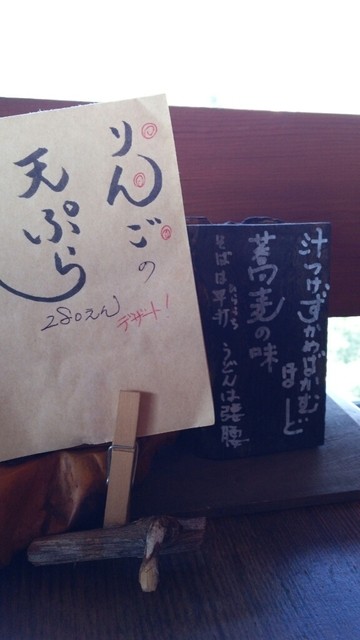 りんごの
天ぷら
280えん
デザート!
汁つけずかめばかむ
ほど
蕎麦の味
そばは平打 うどんは強腰